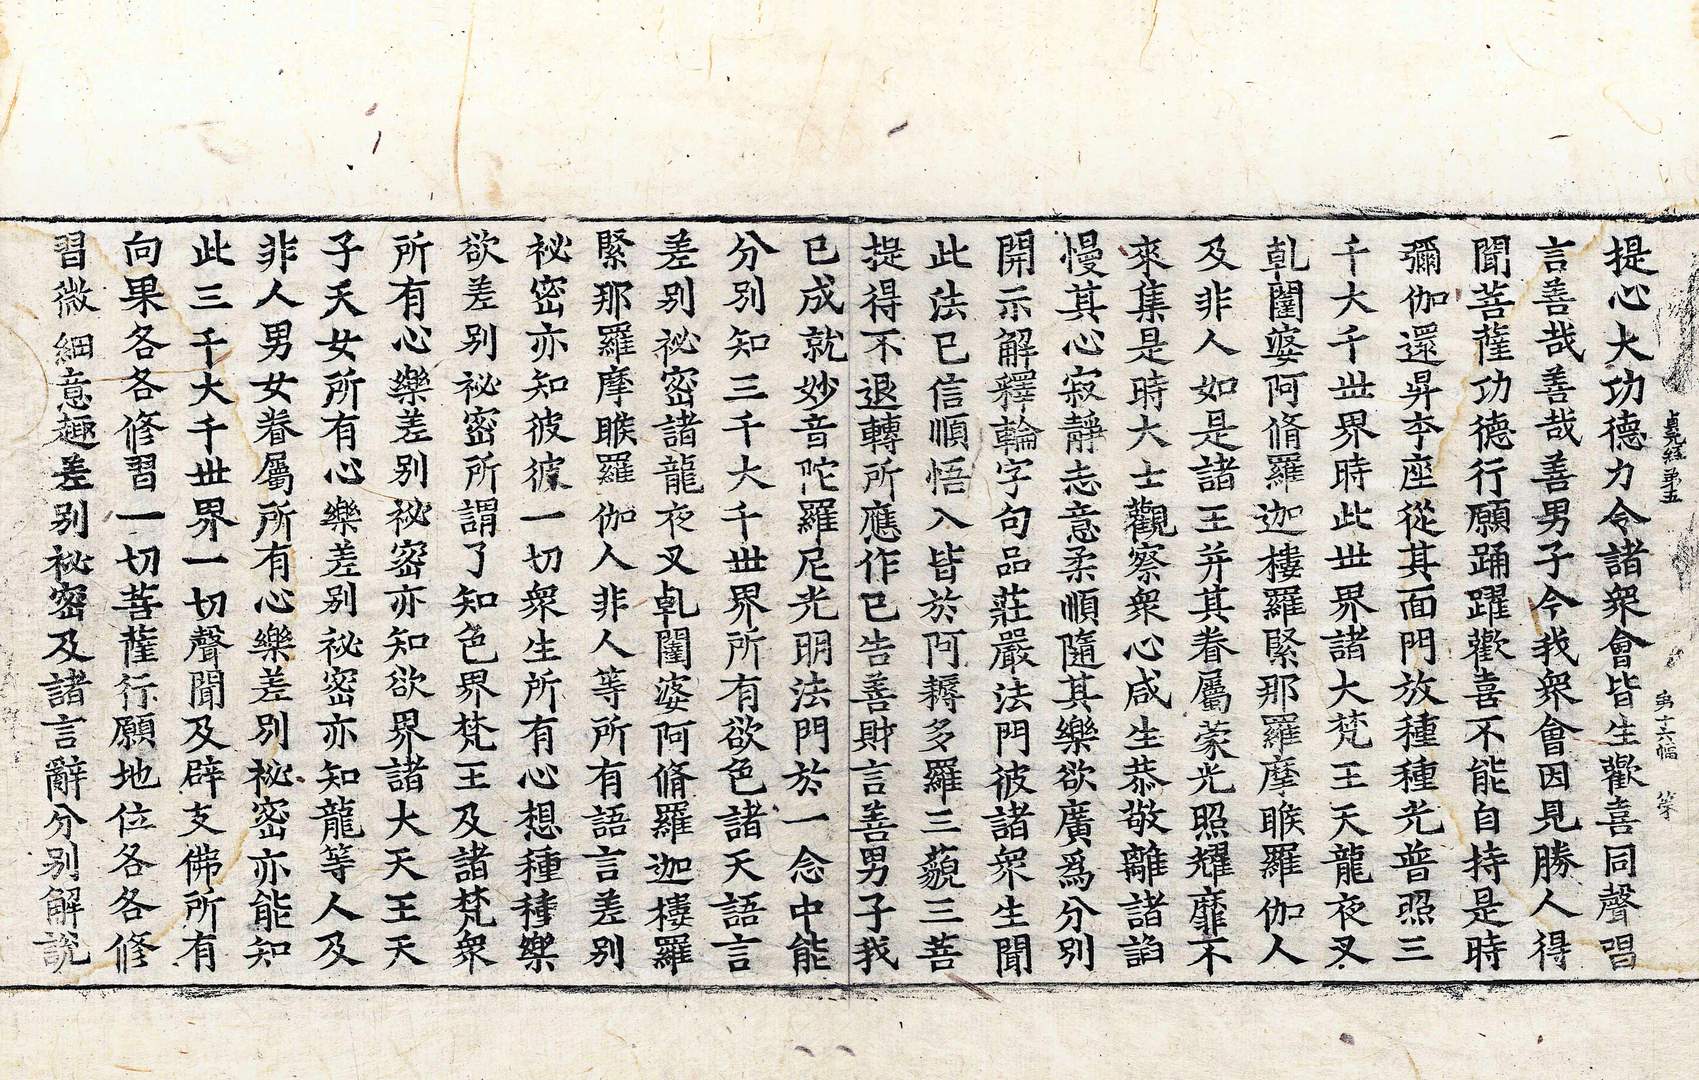 貞元經第五　第十六幅　等
提心大功德力令諸衆會皆生歡喜同聲唱
言善哉善哉善男子今我衆會因見勝人得
聞菩薩功德行願踊躍歡喜不能自持是時
彌伽還昇夲座從其面門放種種光普照三
千大千世界時此世界諸大梵王天龍夜叉
乹闥婆阿脩羅迦樓羅緊那羅摩睺羅伽人
及非人如是諸王并其眷屬蒙光照耀靡不
來集是時大士觀察衆心咸生恭敬離諸諂
慢其心寂靜志意柔順隨其樂欲廣爲分別
開示解釋輪字句品莊嚴法門彼諸衆生聞
此法已信順悟入皆於阿耨多羅三藐三菩
提得不退轉所應作已告善財言善男子我
已成就妙音陀羅尼光明法門於一念中能
分別知三千大千世界所有欲色諸天語言
差別祕密諸龍夜叉乹闥婆阿脩羅迦樓羅
緊那羅摩睺羅伽人非人等所有語言差別
祕密亦知彼彼一切衆生所有心想種種樂
欲差別祕密所謂了知色界梵王及諸梵衆
所有心樂差別祕密亦知欲界諸大天王天
子天女所有心樂差別祕密亦知龍等人及
非人男女眷屬所有心樂差別祕密亦能知
此三千大千世界一切聲聞及辟支佛所有
向果各各修習一切菩薩行願地位各各修
習微細意趣差別祕密及諸言辭分別解説